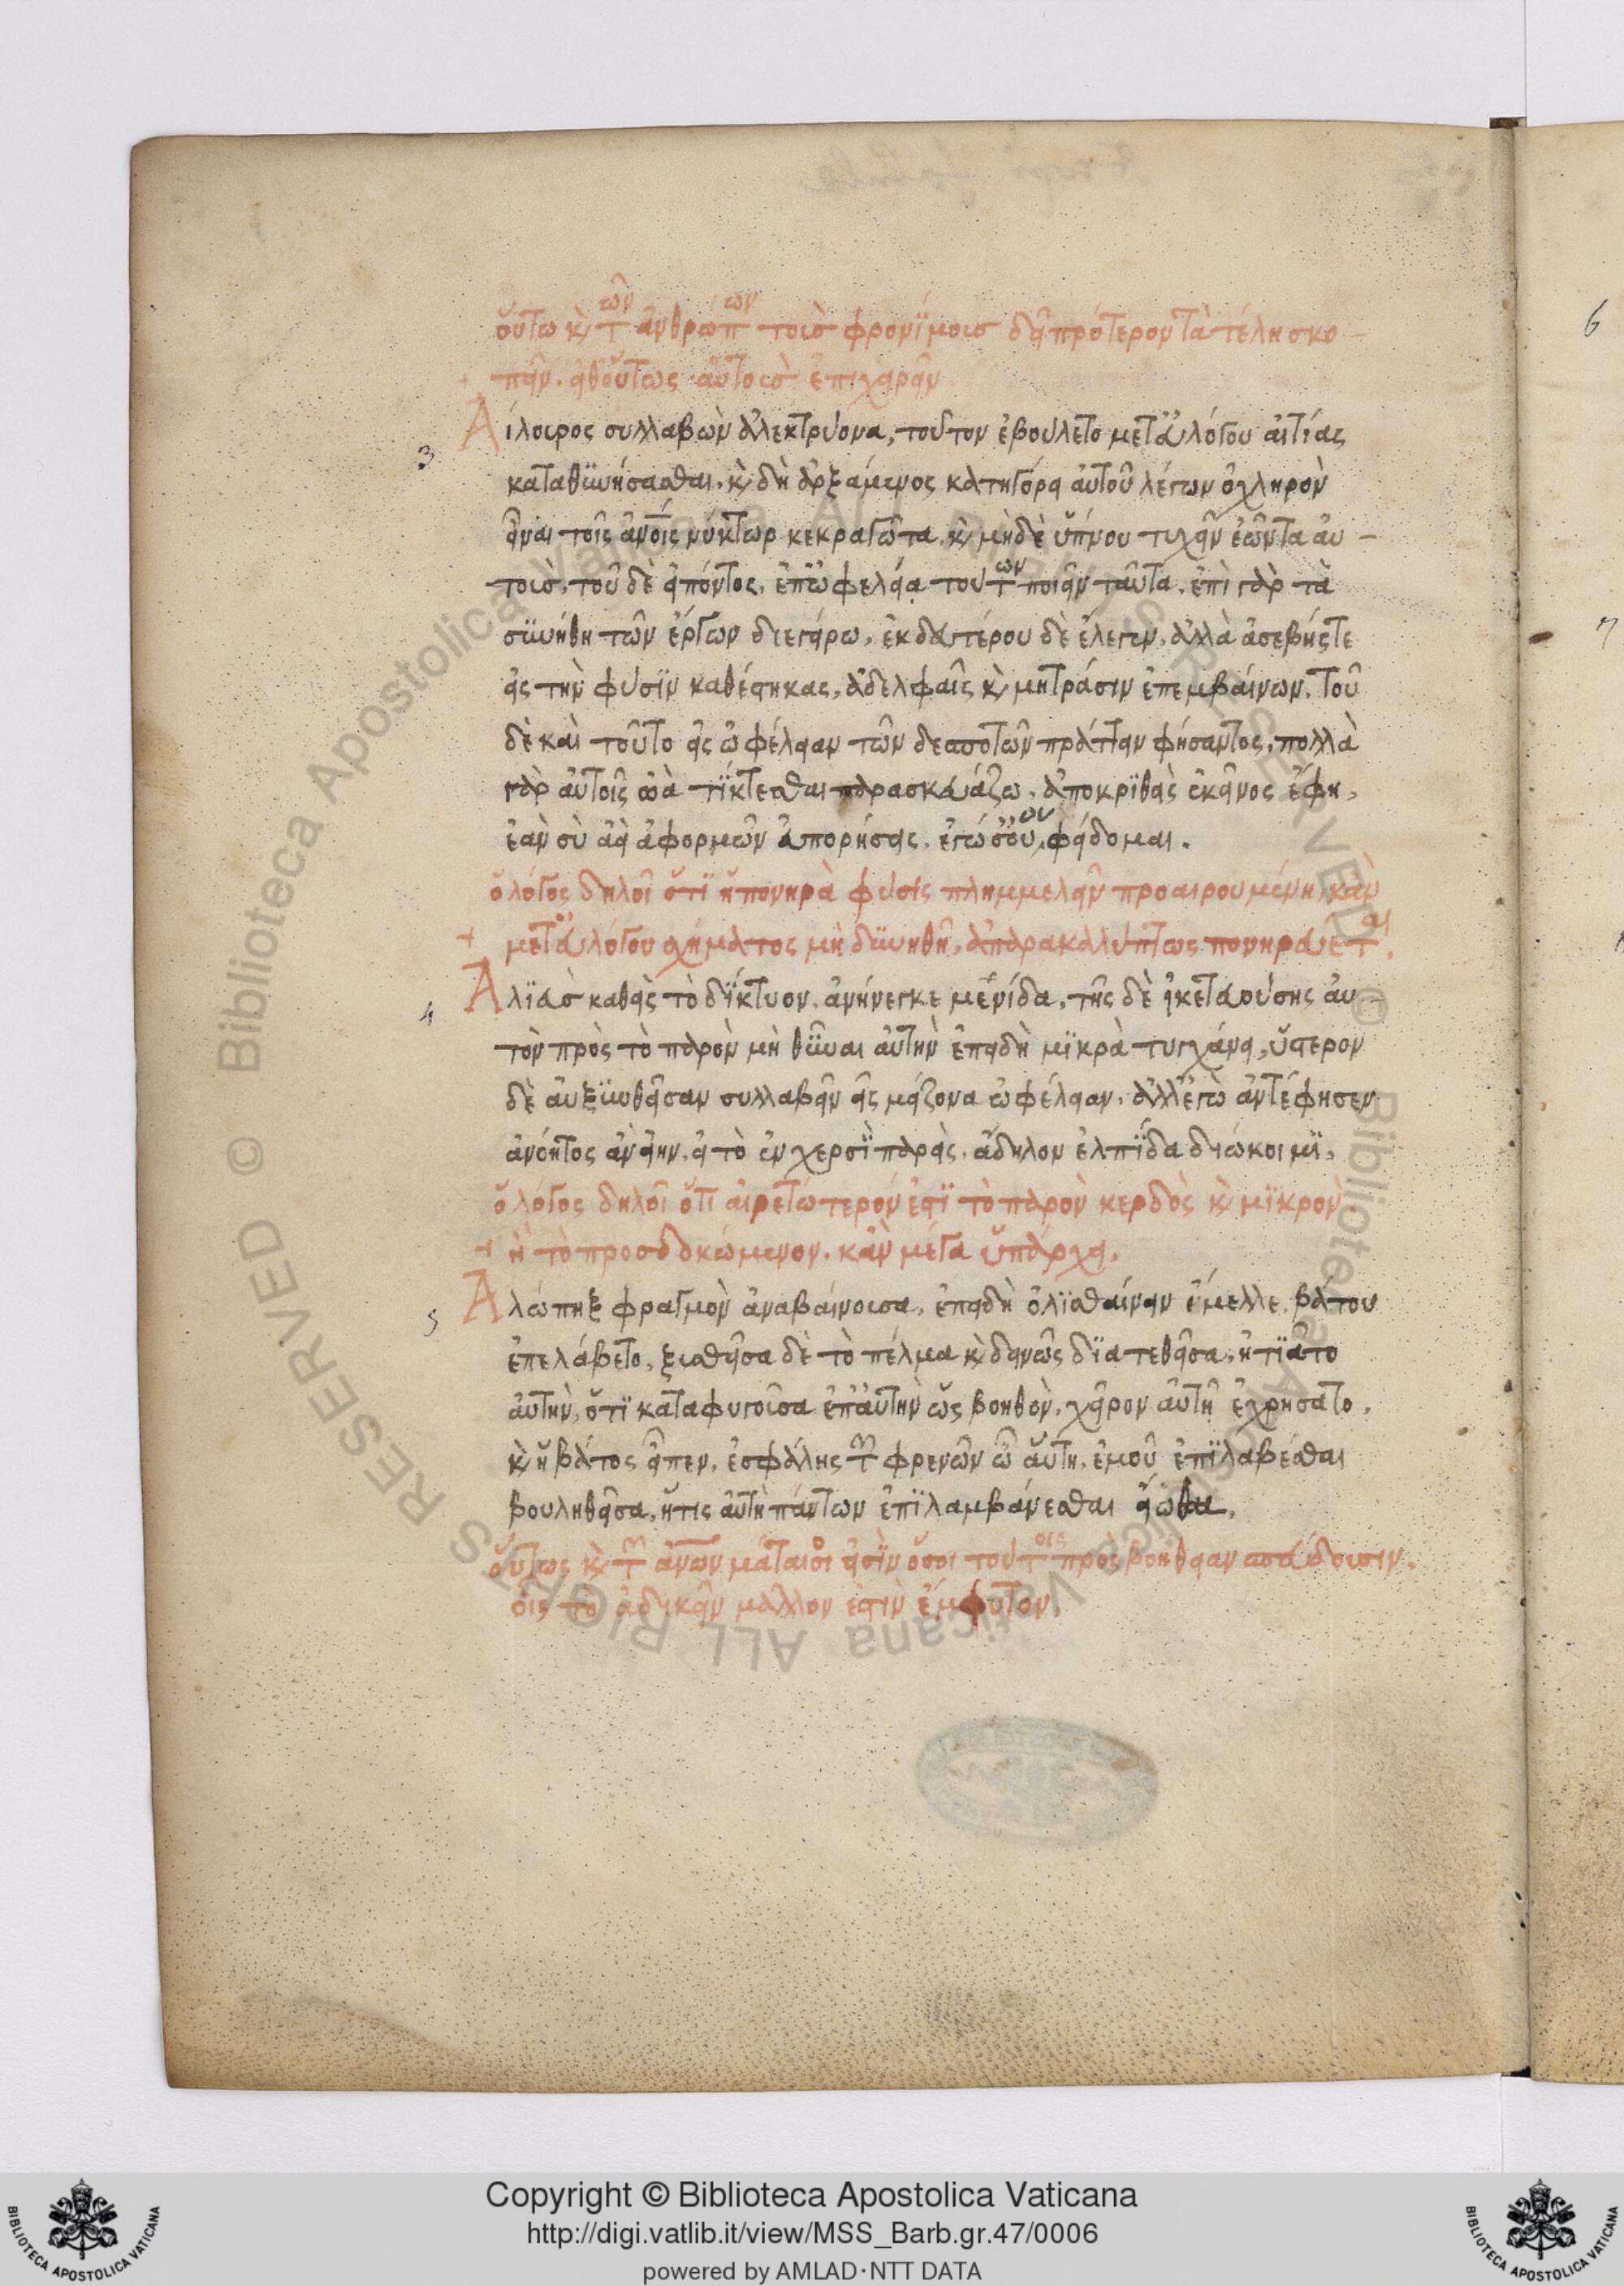 οὕτω κ(αὶ) τῶν ἀνθρώπων τοὺσ φρονΐμουσ δεῖ πρότερον τὰ τέλη σκο-
πεῖν. εἶθ' οὕτως αὐτοῖσ ἐπιχειρεῖν
3 Αἴλουρος συλλαβὼν ἀλεκτρυόνα, τοῦτον ἐβούλετο μετ' εὐλόγου αἰτίας
καταθϋνήσασθαι. κ(αὶ) δὴ ἀρξάμενος κατηγόρει αὐτοῦ λέγων ὀχληρὸν
εἶναι τοῖς ἀνοις νύκτωρ κεκραγῶτα. κ(αὶ) μὴδὲ ὕπνου τυχεῖν ἐῶντα αὐ-
τοὺσ, τοῦ δὲ εἰπόντος, ἐπ' ὠφελεία τούτων ποιεῖν ταῦτα. ἐπὶ γὰρ τὰ
σϋνήθη τῶν ἔργων διεγείρω, ἐκ δευτέρου δὲ ἔλεγεν, ἀλλὰ ἀσεβής τε
εἰς τὴν φύσϊν καθέστηκας, ἀδελφαῖς κ(αὶ) μητράσιν ἐπεμβαίνων. τοῦ
δὲ καὶ τοῦτο εἰς ὠφέλειαν τῶν δεσποτῶν πράττειν φήσαντος, πολλὰ
γὰρ αὐτοῖς ὠὰ τΐκτεσθαι παρασκευάζω, ἀποκρϊθεὶς ἐκεῖνος ἔφη,
ἐὰν σὺ ἀεὶ ἀφορμῶν εὐπορήσεις, ἐγώ σου οὐ φείδομαι.
ὁ λόγος δηλοῖ ὅτϊ ἡ πονηρὰ φύσις πλημμελεῖν προαιρουμένη, κἂν
μετ' εὐλόγου σχήματος μὴ δϋνηθῆ, ἀπαρακαλύπτως πονηρεύεται.
4 Ἁλϊεὺσ καθεὶς τὸ δΐκτυον, ἀνήνεγκε μενίδα, τῆς δὲ ἱκετευούσης αὐ-
τὸν πρὸς τὸ παρὸν μὴ θῦναι αὐτὴν ἐπειδὴ μϊκρὰ τυγχάνει, ὕστερον
δὲ αὐξϋνθεῖσαν συλλαβεῖν εἰς μείζονα ὠφέλειαν. ἀλλ' ἔγω ἀντέφησεν
ἀνόητος ἂν εἴην, εἰ τὸ ἐν χερσῒ παρεὶς, ἄδηλον ἐλπΐδα διώκοιμϊ,
ὁ λόγος δηλοῖ ὅτι αἱρετώτερόν ἐστϊ τὸ παρὸν κερδὸς κ(αὶ) μϊκρὸν.
ἢ τὸ προσδοκώμενον, κἂν μέγα ὑπάρχει.
5 Ἀλώπηξ φραγμὸν ἀναβαίνουσα, ἐπειδὴ ὀλϊσθαίνειν ἔμελλε, βάτου
ἐπελάβετο, ξυσθεῖσα δὲ τὸ πέλμα κ(αὶ) δεινῶς δϊατεθεῖσα, ἠτϊᾶτο
αὐτὴν, ὅτϊ καταφυγοῦσα ἐπ' αὐτὴν ὡς βοηθὸν, χεῖρον αὐτῆ ἐχρήσατο,
κ(αὶ) ἡ βάτος εἶπεν, ἐσφάλης τῶν φρενῶν ὦ αὕτη, ἐμοῦ ἐπϊλαβέσθαι
βουληθεῖσα, ἥτις αὐτὴ πάντων ἐπϊλαμβάνεσθαι εἴωθα,
οὕτως κ(αὶ) τῶν ἀνων μάταιοι εἰσῒν ὅσοι τούτοις πρὸς βοήθειαν σπεύδουσιν.
οἷς τὸ ἀδικεῖν μᾶλλον ἐστὶν ἔμφυτον.
6
7
Copyright © Biblioteca Apostolica Vaticana
http://digi.vatlib.it/view/MSS_Barb.gr.47/0006
powered by AMLAD·NTT DATA
BIBLIOTECA APOSTOLICA VATICANA
BIBLIOTECA APOSTOLICA VATICANA
© Biblioteca Apostolica Vaticana ALL RIGHTS RESERVED